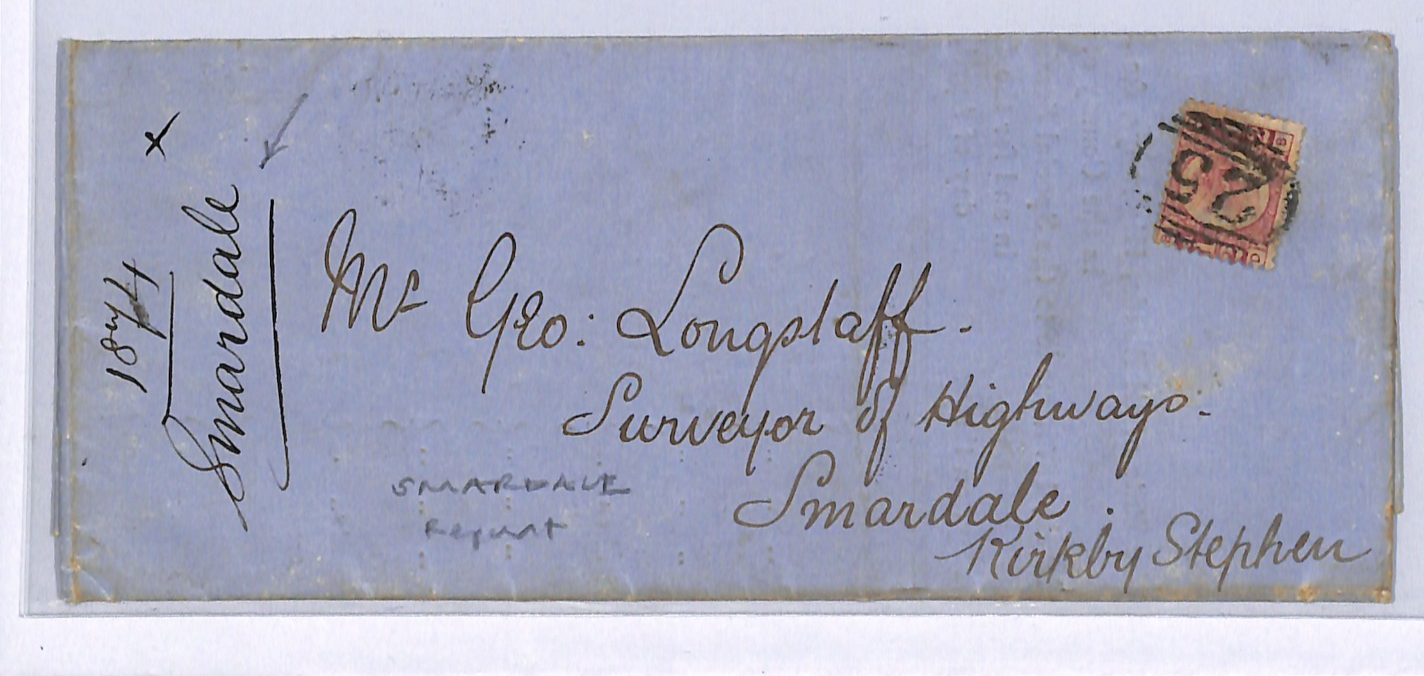 Mr Geo: Longstaff.
Surveyor of Highways.
Smardale.
Kirkby Stephen
Smardale
x
SMARDALE